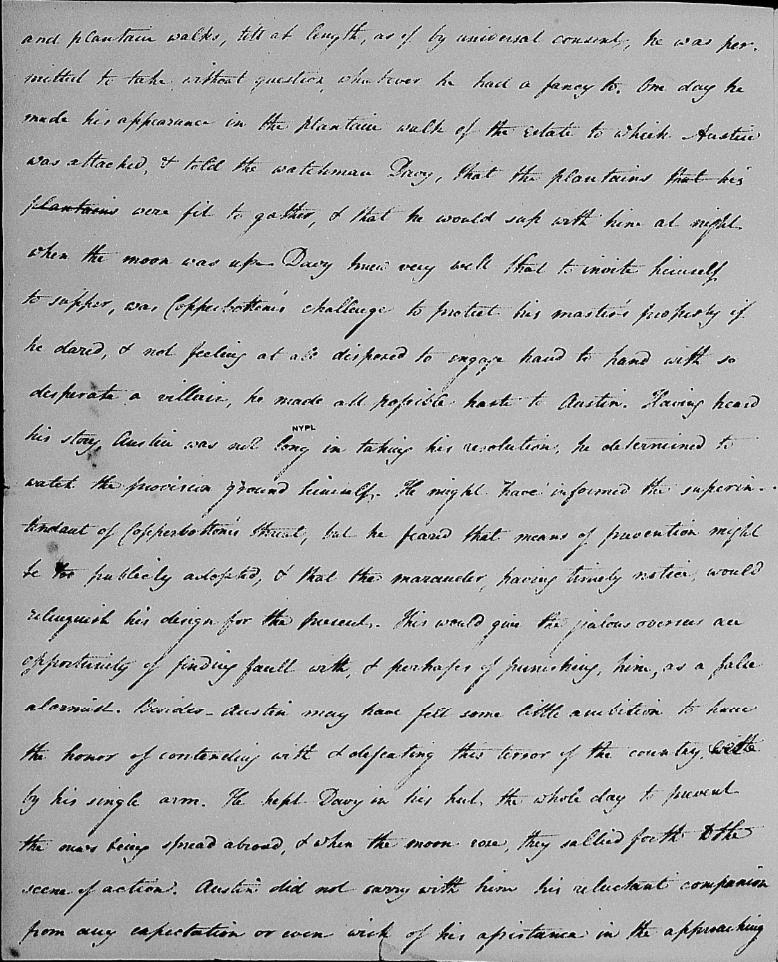 and plantain walks, till at length, as if by universal consent, he was per-
mitted to take without question whatever he had a fancy to. One day he
made his appearance in the plantain walk of the Estate to which Austin
was attached, & told the watchman Davy, that the plantains that his
plantains were fit to gather, & that he would sup with him at night
when the moon was up. Davy knew very well that to invite himself
to supper, was Copperbottom's challenge to protect his master's property if
he dared, & not feeling at all disposed to engage hand to hand with so
desperate a villain, he made all possible haste to Austin. Having heard
NYPL
his story Austin was not long in taking his resolution, he determined to
watch the provision ground himself. He might have informed the superin-
tendant of Copperbottom's threat, but he feared that means of prevention might
be too publicly adopted, & that the marauder, having timely notice, would
relinquish his design for the present. This would give the jealous overseer an
opportunity of finding fault with, & perhaps of punishing, him, as a false
alarmist. Besides - Austin may have felt some little ambition to have
the honor of contending with & defeating this terror of the country
by his single arm. He kept Davy in his hut the whole day to prevent
the news being spread abroad, & when the moon rose, they sallied forth to the
scene of action. Austin did not carry with him his reluctant companion
from any expectation or even wish of his assistance in the approaching